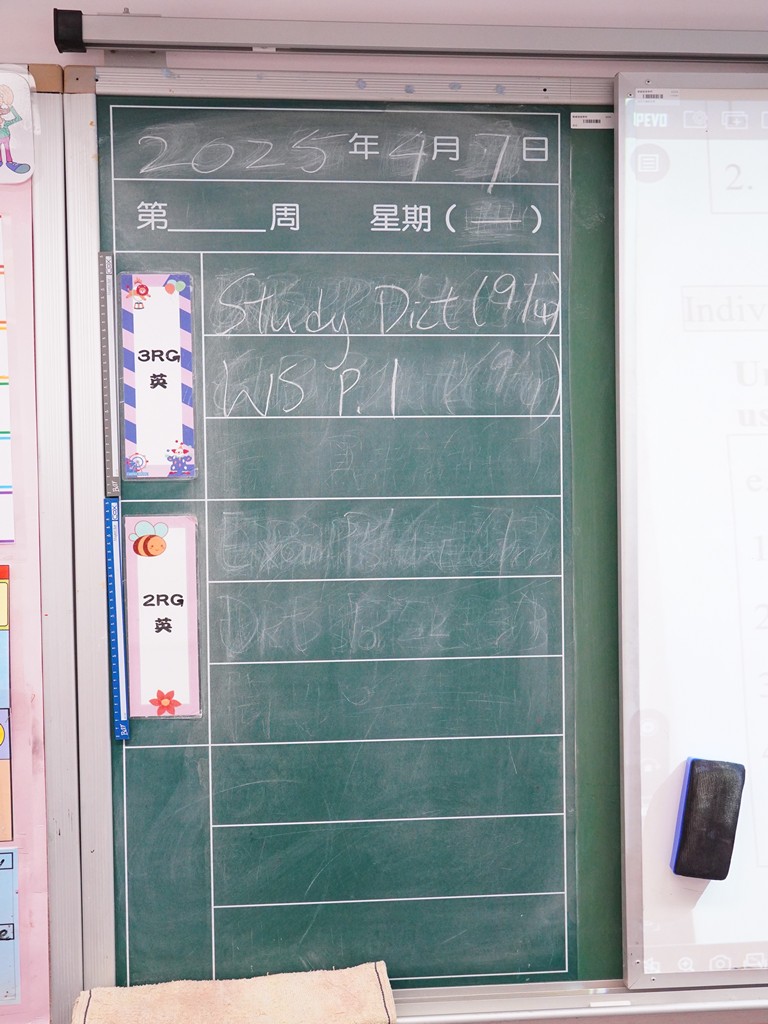 2025年4月7日
第______周 星期(一)
3RG
英
Study Dict (9/4)
WS P.1 (9/4)
2RG
英
IPEVO
2.
Indiv
us
e.
1
2
3